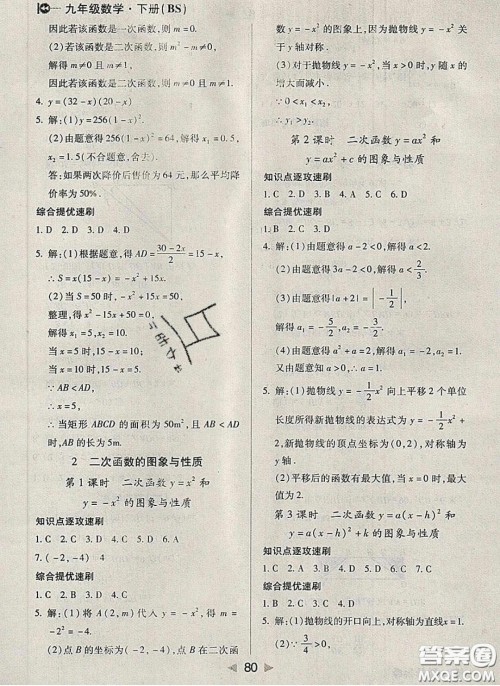 九年级数学·下册(BS)
因此若该函数是一次函数,则 m=0.
(2)若该函数是二次函数,则 m²-m≠0,
解得 m≠0 且 m≠1.
因此若该函数是二次函数,则 m≠0 且 m≠1.
4. y=(32-x)(20-x)
5. 解:(1)y=256(1-x)².
(2)由题意得 256(1-x)²=64,解得 x₁=0.5,
x₂=1.5(不合题意,舍去).
答:如果两次降价后售价为 64 元,那么平均降
价率为 50%.
综合提优速刷
1. D 2. D 3. D 4. D
5. 解:(1)根据题意,得 AD=(30-2x)/2=15-x,
∴S=x(15-x)=-x²+15x.
(2)当 S=50 时,-x²+15x=50,
整理,得 x²-15x+50=0,
解得 x₁=5,x₂=10.
当 x=5 时,15-x=10;
当 x=10 时,15-x=5.
∵AB<AD,
∴x=5,
∴当矩形 ABCD 的面积为 50m² 时,边 AB
的长为 5m.
2 二次函数的图象与性质
第 1 课时 二次函数 y=x² 和
y=-x² 的图象与性质
知识点逐攻速刷
1. C 2. C 3. D 4. D 5. D 6. A
7. (-2,-4) 4
综合提优速刷
1. C 2. A 3. D 4. C
5. 解:(1)将 A(2,m)代入 y=-x²,得 m=
-2²=-4.
(2)点 B 的坐标为(-2,-4),点 B 在二次函
数 y=-x² 的图象上,因为抛物线 y=-x² 关
于 y 轴对称.
(3)对于抛物线 y=-x²,当 x>0 时,y 随 x 的
增大而减小.
∵0<x₁<x₂,
∴y₁>y₂.
第 2 课时 二次函数 y=ax² 和
y=ax²+c 的图象与性质
知识点逐攻速刷
1. C 2. D 3. A 4. B 5. C 6. D
综合提优速刷
1. B 2. C 3. D
4. 解:(1)由题意得 a-2<0,解得 a<2.
(2)由题意得 3a-2<0,解得 a<2/3.
(3)由题意得 |a+2|=|-1/2|,
解得 a₁=-5/2,a₂=-3/2.
(4)由题意得 a²+a=2,解得 a₁=-2,a₂=1.
又由题意知 a>0,∴a=1.
5. 解:(1)抛物线 y=-1/2x² 向上平移 2 个单位
长度所得新抛物线的表达式为 y=-1/2x²+
2,新抛物线的顶点坐标为(0,2),对称轴为
y 轴.
(2)新抛物线的函数有最大值,当 x=0 时,最
大值为 2.
第 3 课时 二次函数 y=a(x-h)² 和
y=a(x-h)²+k 的图象与性质
知识点逐攻速刷
1. C 2. C 3. B 4. C 5. D
综合提优速刷
1. B 2. C 3. D 4. C
5. 解:(1)抛物线的开口向上,对称轴为直线x=1.
(2)∵3/4>0,
80
答案圈
MXQE.COM